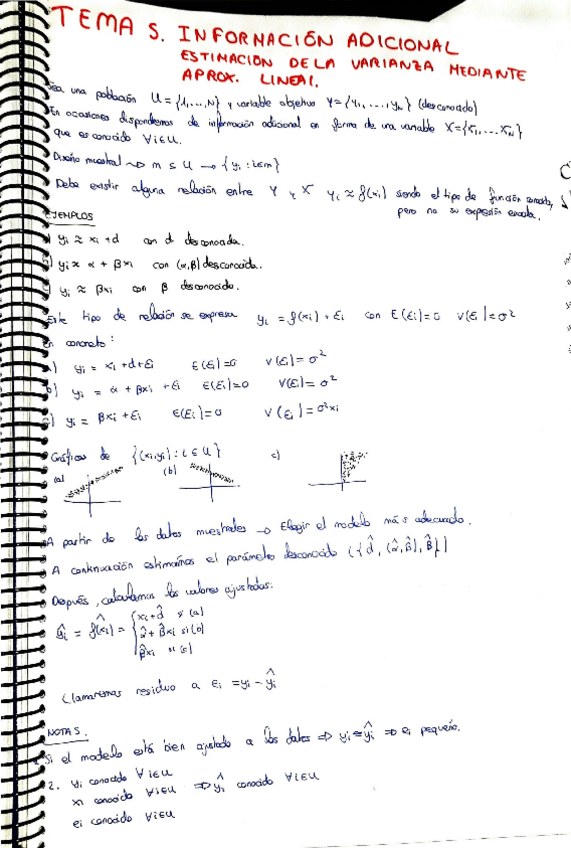 TEMA 5. INFORNACIÓN ADICIONAL
ESTIMACIÓN DE LA VARIANZA MEDIANTE
APROX. LINEAL.
Sea una población U = {1,...,N} y variable objetivo Y = {y₁,...,y_N} (desconocido)
En ocasiones dispondremos de información adicional en forma de una variable X = {x₁,...x_N}
que es conocido ∀i∈U.
Diseño muestral ⇝ m ⊆ U → {yᵢ : i∈m}
Debe existir alguna relación entre Y y X yᵢ ≈ f(xᵢ) siendo el tipo de función conocida,
pero no su expresión exacta.
EJEMPLOS
a) yᵢ ≈ xᵢ + d con d desconocida.
b) yᵢ ≈ α + βxᵢ con (α,β) desconocida.
c) yᵢ ≈ βxᵢ con β desconocido.
Este tipo de relación se expresa yᵢ = f(xᵢ) + εᵢ con E(εᵢ)=0 V(εᵢ)=σ²
En concreto:
a) yᵢ = xᵢ + d + εᵢ E(εᵢ)=0 V(εᵢ)=σ²
b) yᵢ = α + βxᵢ + εᵢ E(εᵢ)=0 V(εᵢ)=σ²
c) yᵢ = βxᵢ + εᵢ E(εᵢ)=0 V(εᵢ)=σ²xᵢ
Gráficas de {(xᵢ,yᵢ) : i∈U}
(a) (b) c)
A partir de los datos muestrales → Elegir el modelo más adecuado.
A continuación estimamos el parámetro desconocido ({d̂, (α̂,β̂), β̂})
Después, calculamos los valores ajustados:
ŷᵢ = f̂(xᵢ) = { xᵢ + d̂ si (a)
α̂ + β̂xᵢ si (b)
β̂xᵢ si (c)
Llamaremos residuo a εᵢ = yᵢ - ŷᵢ
NOTAS.
1. Si el modelo está bien ajustado a los datos ⇒ yᵢ ≈ ŷᵢ ⇒ eᵢ pequeño.
2. yᵢ conocido ∀i∈U
xᵢ conocido ∀i∈U ⇒ ŷᵢ conocido ∀i∈U
eᵢ conocido ∀i∈U